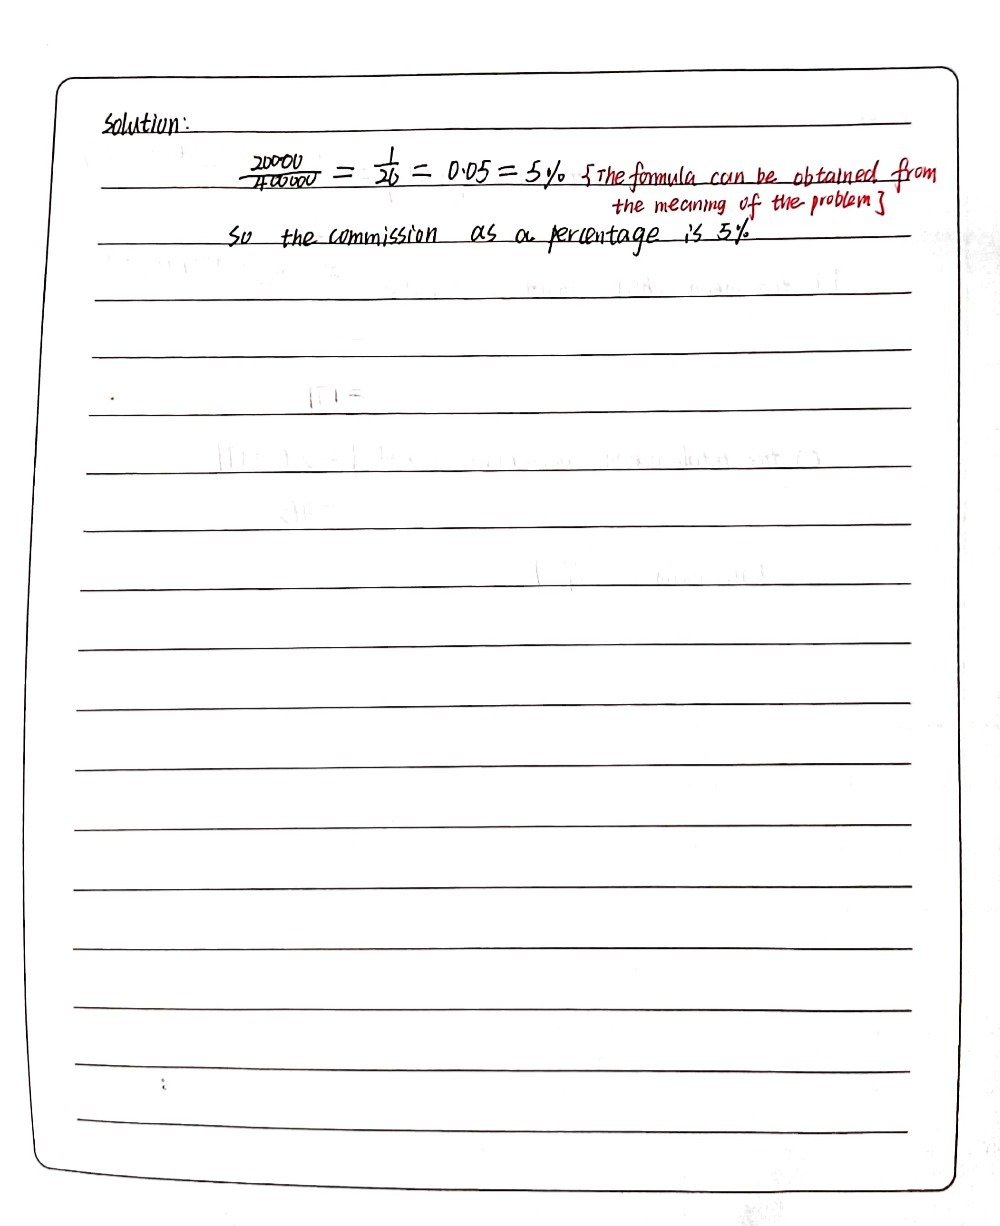 Solution:
20000/400000 = 1/20 = 0.05 = 5% {The formula can be obtained from
the meaning of the problem}
So the commission as a percentage is 5%